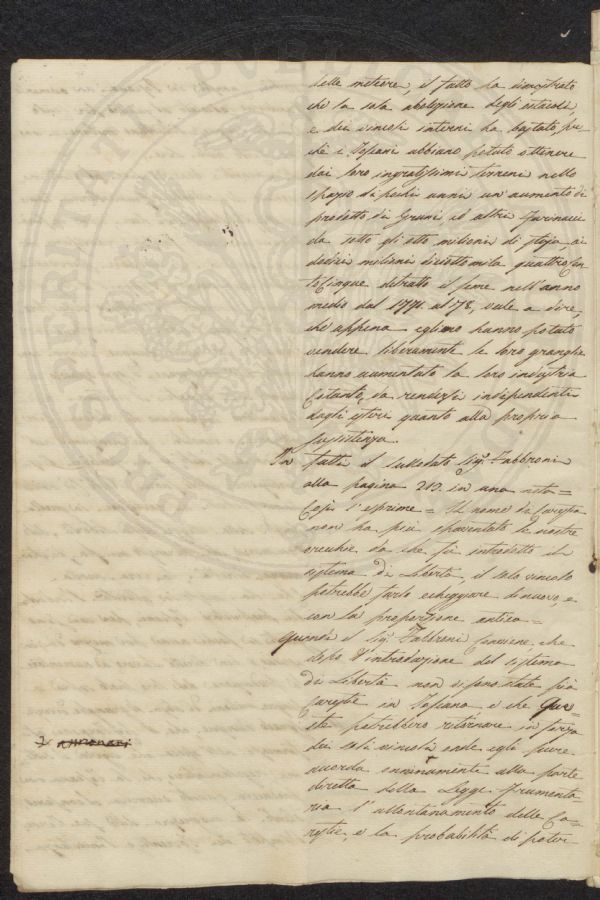 delle meteore, il fatto ha dimostrato
che la sola abolizione degli ostacoli,
e dei vincoli interni ha bastato, per
chè i Toscani abbiano potuto ottenere
dai loro ingratissimi terreni nello
spazio di pochi anni un'aumento di
prodotto, di Grani ed altri farinacei
da sotto gli otto milioni di staja, ai
dodici milioni diciottomila quattrocen
tocinque detratto il seme nell'anno
medio dal 1771. al 178, vale a dire,
che appena eglino hanno potuto
vendere liberamente le loro granaglie
hanno aumentato la loro industria
cotanto, da rendersi indipendenti
dagli esteri quanto alla propria
sussistenza.
In fatti il sullodato Sig.r Fabbroni
alla pagina 213. in una nota =
Così s'esprime = Il nome di Carestia
non ha più spaventato le nostre
orecchie da che fu introdotto il
sistema di Libertà, il solo vincolo
potrebbe farlo echeggiare di nuovo, e
con la proporzione antica =
Quindi il Sig.r Fabbroni conviene, che
dopo l'introduzione del sistema
di Libertà non vi sono state più
Carestie in Toscana e che Que
ste potrebbero ritornare in forza
dei soli vincoli onde egli pure
accorda alla parte
diretta della Legge frumenta
ria l'allontanamento delle Ca
restie, e la probabilità di poter
PROSPERITATI